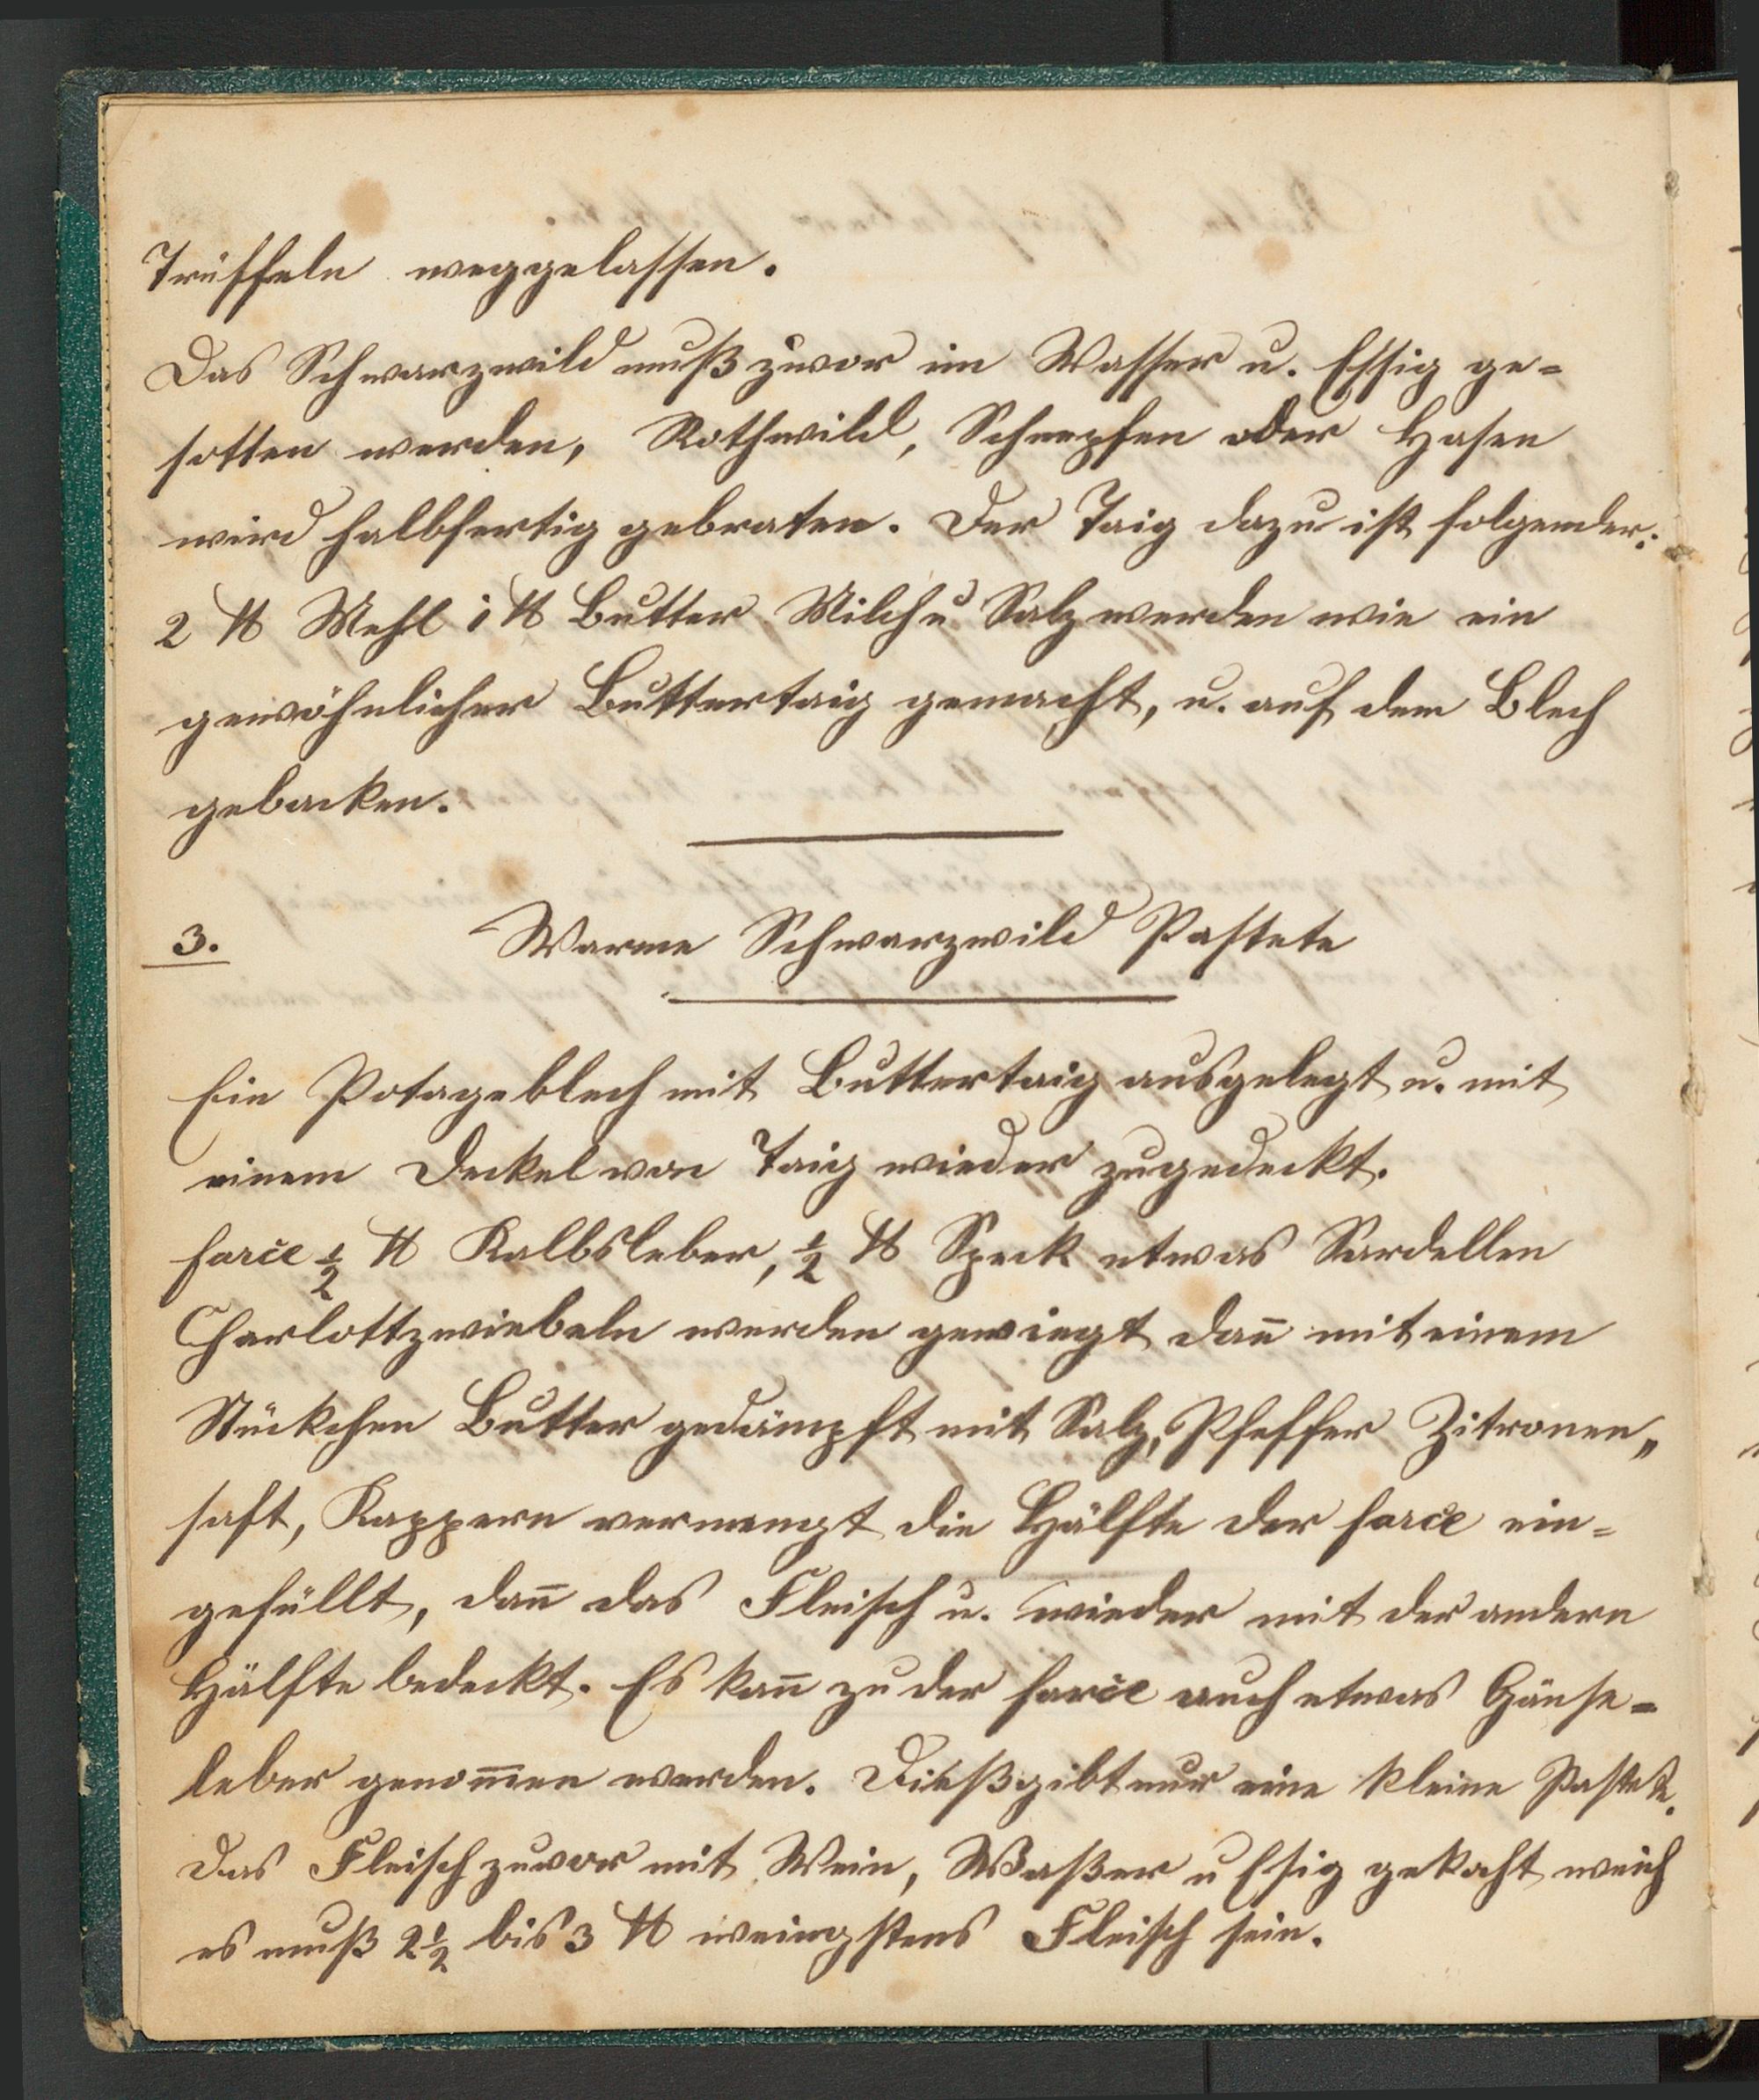 Trüffeln weggelassen.
Das Schwarzwild muß zuvor im Wasser u. Essig ge-
sotten werden, Rothwild, Schnepfen oder Hasen
wird halbfertig gebraten. Der Taig dazu ist folgender:
2 ℔ Mehl 1 ℔ Butter Milch u Salz werden wie ein
gewöhnlicher Buttertaig gemacht, u. auf dem Blech
gebacken.
3. Warme Schwarzwild Pastete
Ein Potageblech mit Buttertaig ausgelegt u. mit
einem Deckel von Taig wieder zugedeckt.
farce ½ ℔ Kalbsleber, ½ ℔ Speck etwas Sardellen
Charlottzwiebeln werden gewiegt dan̄ mit einem
Stückchen Butter gedämpft mit Salz, Pfeffer Zitronen„
saft, Kappern vermengt die Hälfte der farce ein-
gefüllt, dan̄ das Fleisch u. wieder mit der andern
Hälfte bedeckt. Es kan̄ zu der farce auch etwas Gänse-
leber genom̄en werden. Dießgibt nur eine kleine Pastete.
Das Fleisch zuvor mit Wein, Waßer u Esig gekocht weich
es muß 2½ bis 3 ℔ weingstens Fleisch sein.